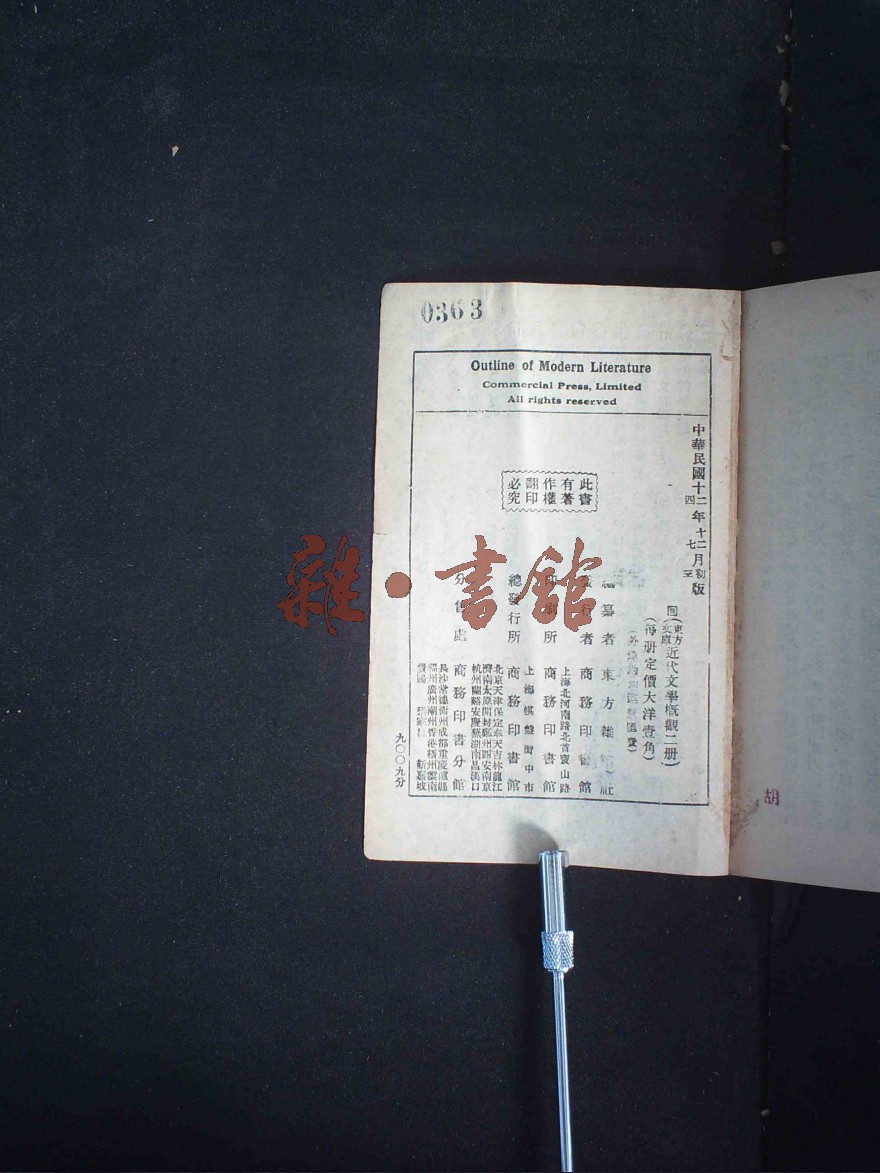 0363
Outline of Modern Literature
Commercial Press, Limited
All rights reserved
中華民國十二年十二月初版
四 七 三
此書
有著
作權
翻印
必究
東方
文庫
近代文學概觀二册
(每册定價大洋壹角)
編纂者 東方雜 社
發行者 商務印書館
上海北河南路北首寶山路
印刷所 商務印書館
上海棋盤街中市
總發行所 商務印書館
北京天津保定奉天吉林龍江
濟南太原開封鄭州西安南京
杭州蘭谿安慶蕪湖南昌漢口
分售處 商務印書分館
長沙常德衡州成都重慶瀘縣
福州廣州潮州香港梧州雲南
貴陽 張家口 新嘉坡
九〇〇九分
胡
雜·書館